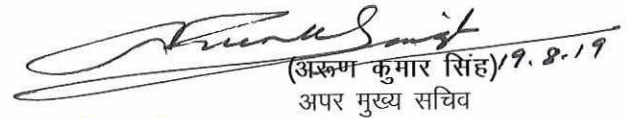 (अरूण कुमार सिंह) 19.8.19
अपर मुख्य सचिव